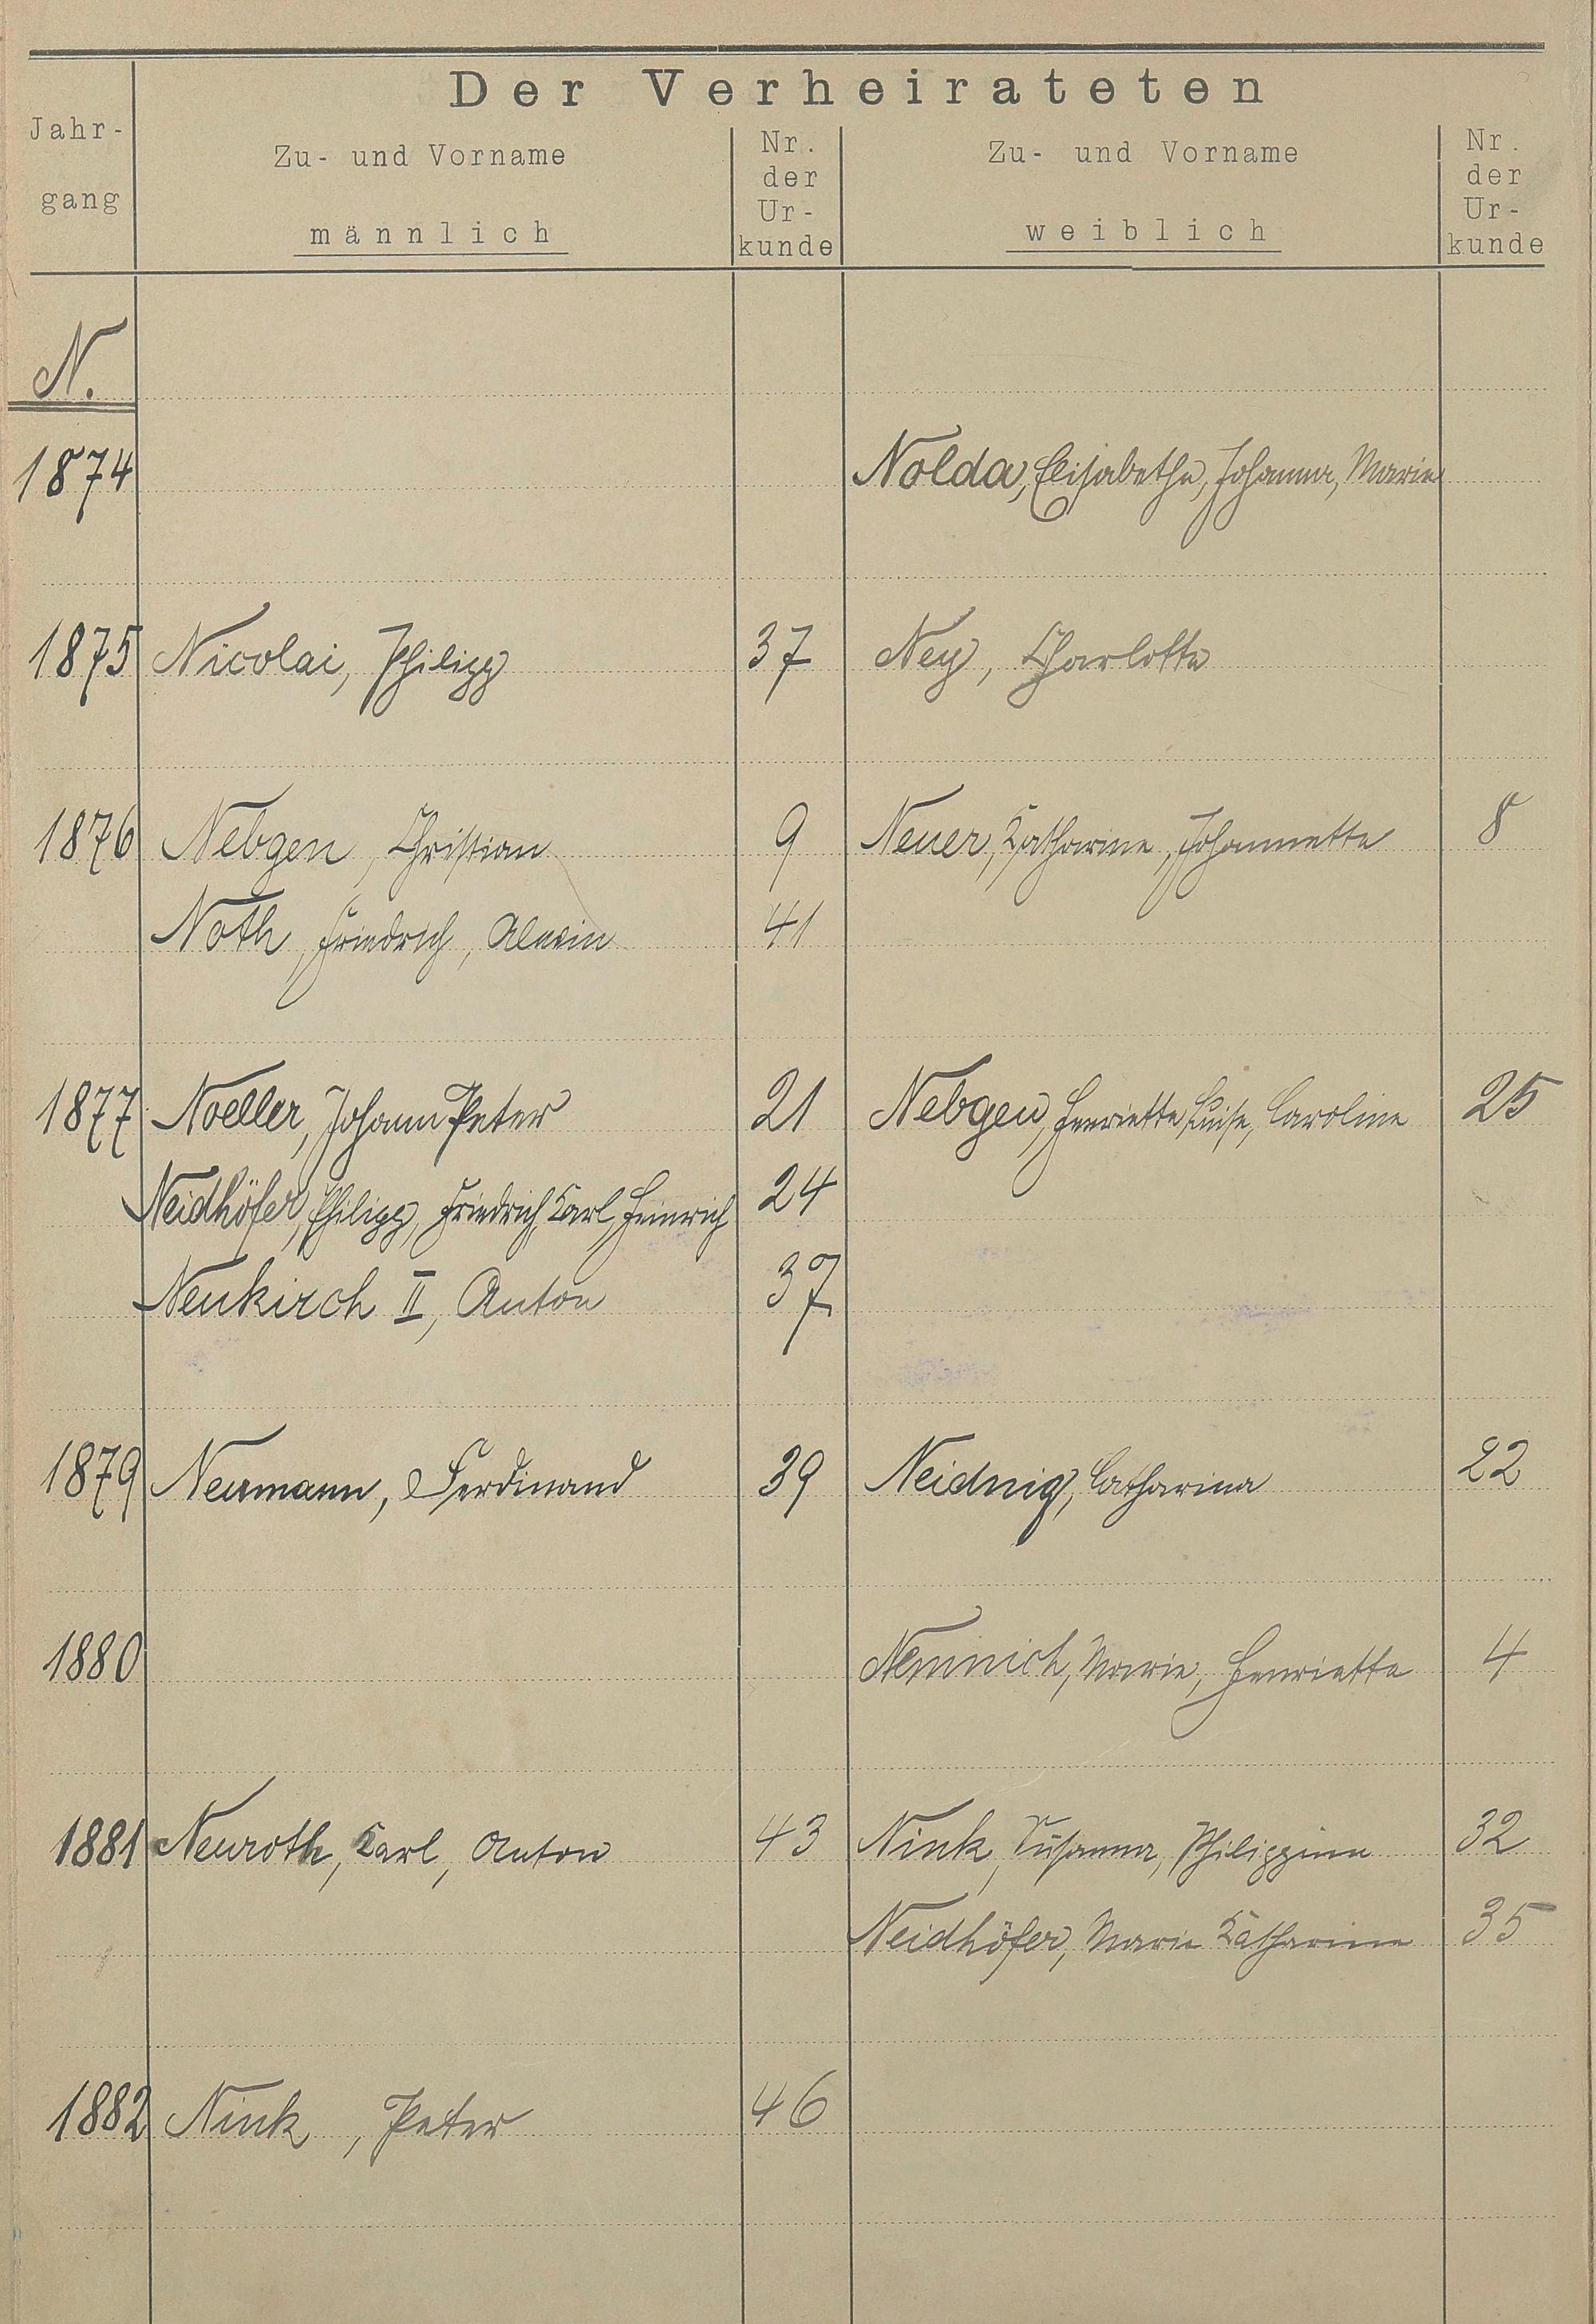 Der Verheirateten
Jahr-
gang
Zu- und Vorname
männlich
Nr.
der
Ur-
kunde
Zu- und Vorname
weiblich
Nr.
der
Ur-
kunde
N.
1874 Nolda, Elisabethe, Johanna, Marie
1875 Nicolai, Philipp 37 Ney, Charlotte
1876 Nebgen, Christian 9 Neuer, Katharine, Johannette 8
Noth, Friedrich, Alwin 41
1877 Noeller, Johann Peter 21 Nebgen, Henriette Luise, Caroline 25
Neidhöfer, Philipp, Friedrich, Karl, Heinrich 24
Neukirch II, Anton 37
1879 Neumann, Ferdinand 39 Neidnig, Catharina 22
1880 Nemnich, Marie, Henriette 4
1881 Neuroth, Karl, Anton 43 Nink, Susanna, Philippine 32
Neidhöfer, Marie Katharine 35
1882 Nink, Peter 46